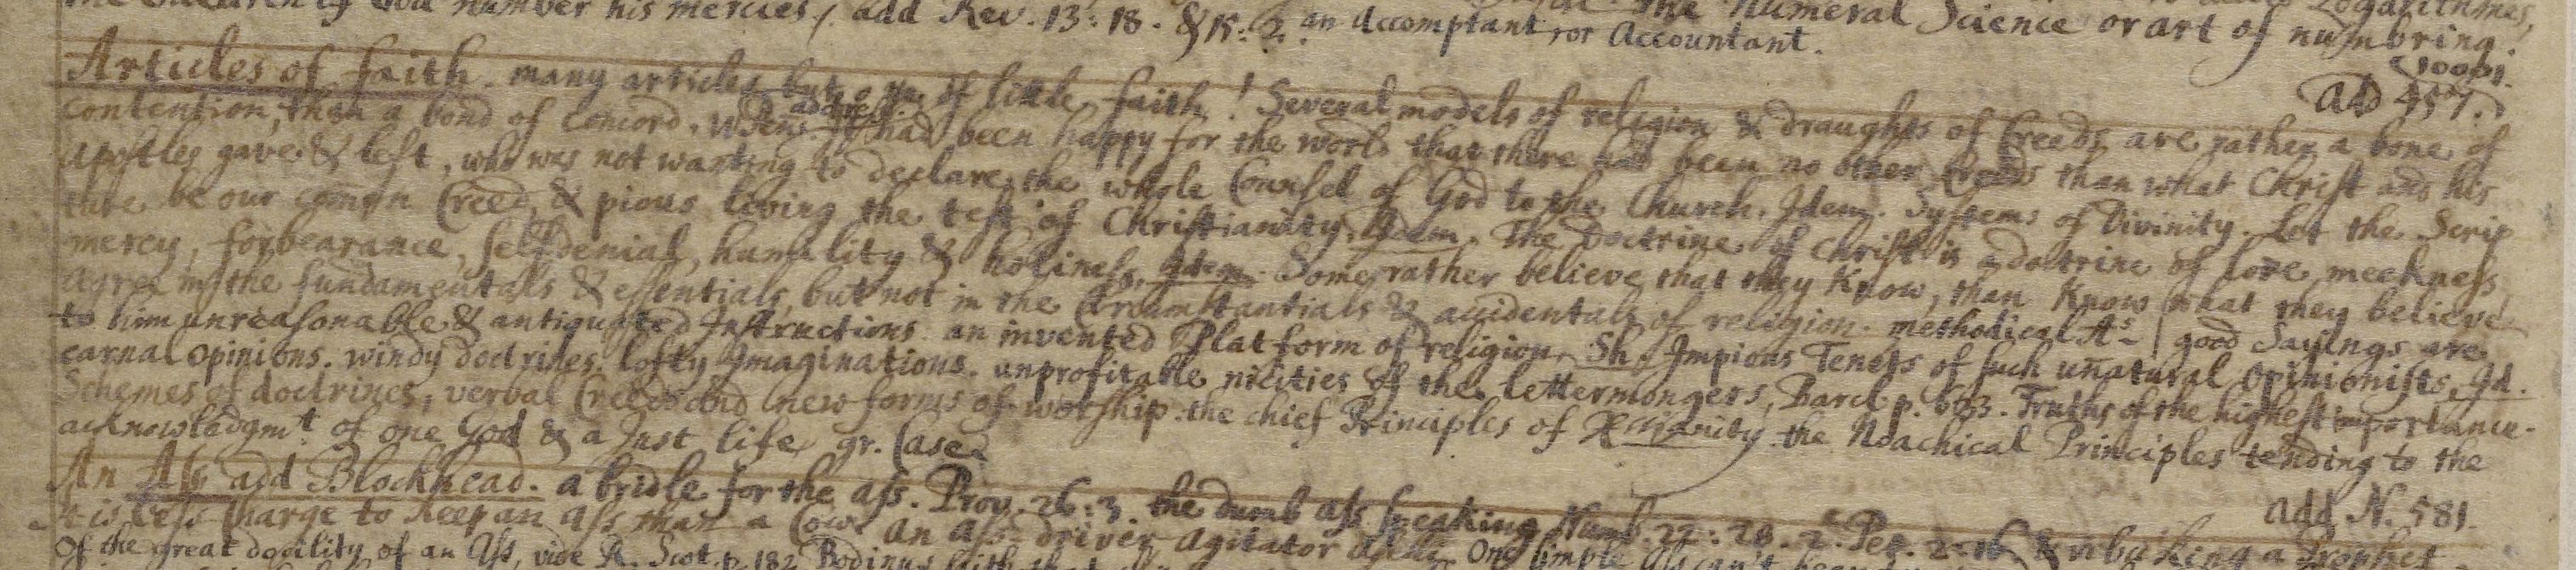 the children of God number his mercies. add Rev. 13: 18. & 15: 2. an Accomptant or Accountant. The Numeral Science or art of numbring.
Logarithmes,
add 457.
Articles of faith. many articles but o ye of little faith! Several models of religion & draughts of Creeds are rather a bone of
contention, than a bond of concord. had been happy for the world that there had been no other Creeds than what Christ and his
Apostles gave & left, who was not wanting to declare the whole Counsel of God to the Church. Idem. Systems of Divinity. Let the Scrip
ture be our comon Creed, & pious living the test of Christianity. Idem. The Doctrine of Christ is a doctrine of love, meekness,
mercy, forbearance, selfdenial, humility & holiness. Idem. Some rather believe that they know, than know what they believe
agree in the fundamentals & essentials, but not in the Circumstantials & accidentals of religion. methodical As | good Sayings are
to him unreasonable & antiquated Instructions. an invented Platform of religion. Sh. Impious Tenets of such unatural opinionists. Id.
carnal opinions. windy doctrines. lofty Imaginations. unprofitable niceties of the lettermongers, Barcl. p. 603. Truths of the highest importance.
Schemes of doctrines, verbal Creeds and new forms of worship. the chief Principles of Xtianity. the Noachical Principles tending to the
acknowladgmt. of one God & a Just life gr. Cased
add N. 581.
An Ass add Blockhead. a bridle for the ass. Prov. 26: 3. the dumb ass speaking Numb. 22: 28. 2. Pet. 2: 16. & rebuking a Prophet.
it is less Charge to keep an ass than a Cow. an ass-driver. agitator One simple Ass can't
Of the great docility of an Ass, vide R. Scot. p. 182. Bodinus saith that